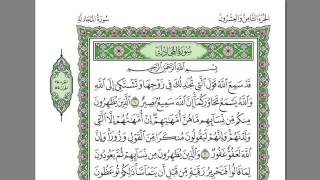 الجزء الثامن والعشرون
سورة المجادلة
سورة المجادلة
بسم الله الرحمن الرحيم
قد سمع الله قول التي تجادلك في زوجها وتشتكي إلى
الله والله يسمع تحاوركما إن الله سميع بصير ١ الذين يظاهرون
منكم من نسائهم ما هن أمهاتهم إن أمهاتهم إلا الئي
ولدنهم وإنهم ليقولون منكرا من القول وزورا وإن
الله لعفو غفور ٢ والذين يظاهرون من نسائهم ثم يعودون
لما قالوا فتحرير رقبة من قبل أن يتماسا ذلكم توعظون